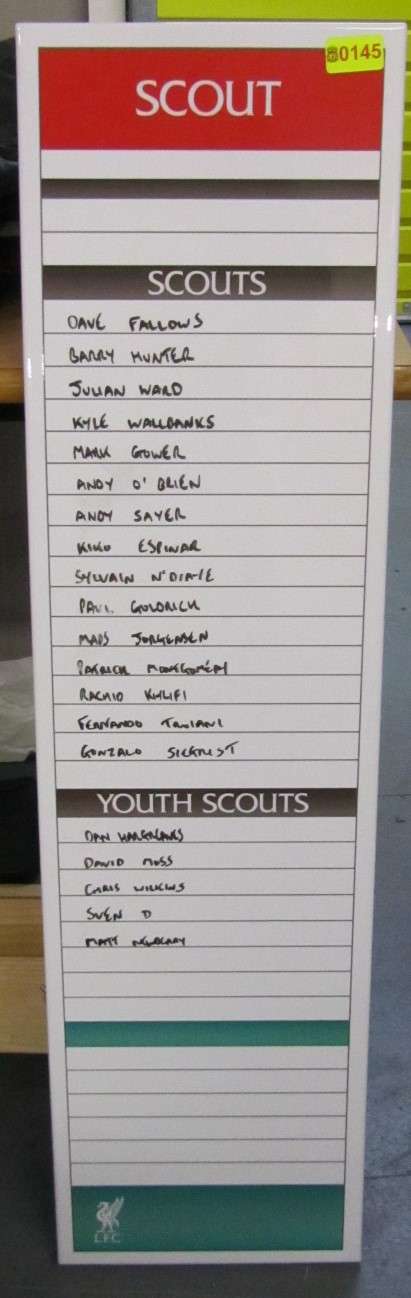 80145
SCOUT
SCOUTS
DAVE FALLOWS
BARRY HUNTER
JULIAN WARD
KYLE WALLBANKS
MARK GOWER
ANDY O'BRIEN
ANDY SAYER
KIKO ESPINAR
SYLVAIN N'DIAYE
PAUL GOLDRICK
MADS JORGENSEN
PATRICK MONTGOMERY
RACHID KHLIFI
FERNANDO TROIANI
GONZALO
YOUTH SCOUTS
DAN HARGREAVES
DAVID MOSS
CHRIS WILKINS
SVEN D
MATT NEWBERRY
L.F.C